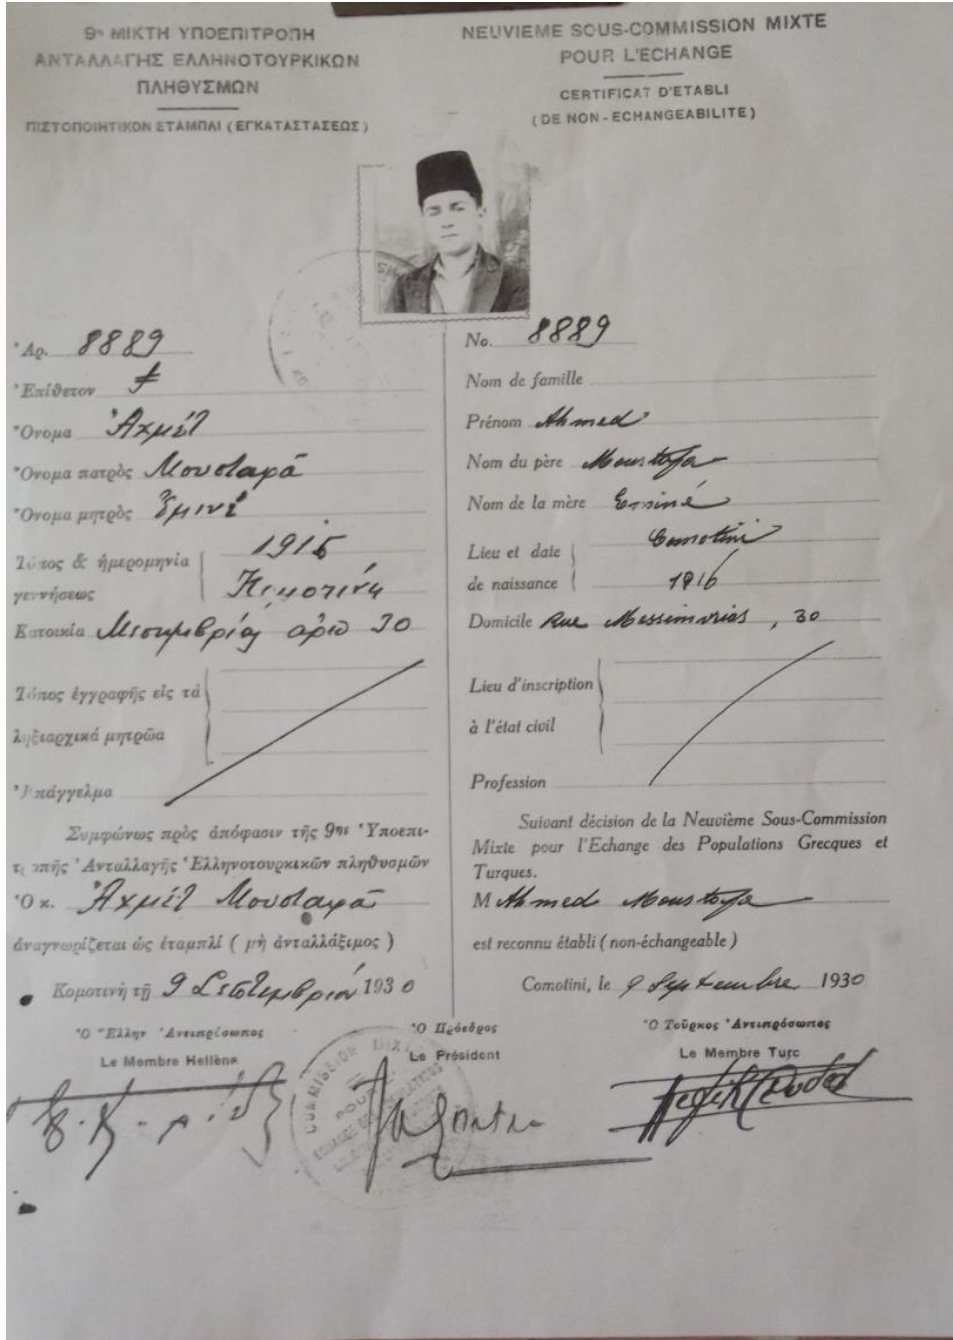 9η ΜΙΚΤΗ ΥΠΟΕΠΙΤΡΟΠΗ
ΑΝΤΑΛΛΑΓΗΣ ΕΛΛΗΝΟΤΟΥΡΚΙΚΩΝ
ΠΛΗΘΥΣΜΩΝ
ΠΙΣΤΟΠΟΙΗΤΙΚΟΝ ΕΤΑΜΠΛΙ (ΕΓΚΑΤΑΣΤΑΣΕΩΣ)
Ἀρ. 8889
Ἐπίθετον
Ὄνομα Ἀχμέτ
Ὄνομα πατρὸς Μουσταφᾶ
Ὄνομα μητρὸς Ἐμινὲ
Τόπος & ἡμερομηνία
γεννήσεως
1915
Κομοτινή
Κατοικία Μεσημβρίας 30
Τόπος ἐγγραφῆς εἰς τὰ
ληξιαρχικά μητρῶα
Ἐπάγγελμα
Συμφώνως πρὸς ἀπόφασιν τῆς 9ης Ὑποεπι-
τροπῆς Ἀνταλλαγῆς Ἑλληνοτουρκικῶν πληθυσμῶν
Ὁ κ. Ἀχμέτ Μουσταφᾶ
ἀναγνωρίζεται ὡς ἐταμπλί ( μὴ ἀνταλλάξιμος )
Κομοτινὴ τῇ 9 Σεπτεμβρίου 1930
Ὁ Ἕλλην Ἀντιπρόσωπος
Le Membre Hellène
NEUVIEME SOUS-COMMISSION MIXTE
POUR L'ECHANGE
CERTIFICAT D'ETABLI
(DE NON-ECHANGEABILITE)
No. 8889
Nom de famille
Prénom Ahmed
Nom du père Moustafa
Nom de la mère Eminé
Lieu et date
de naissance
Comotini
1916
Domicile Rue Messimvrias, 30
Lieu d'inscription
à l'état civil
Profession
Suivant décision de la Neuvième Sous-Commission
Mixte pour l'Echange des Populations Grecques et
Turques.
M Ahmed Moustafa
est reconnu établi ( non-échangeable )
Comotini, le 9 Septembre 1930
Ὁ Πρόεδρος
Le Président
Ὁ Τοῦρκος Ἀντιπρόσωπος
Le Membre Turc